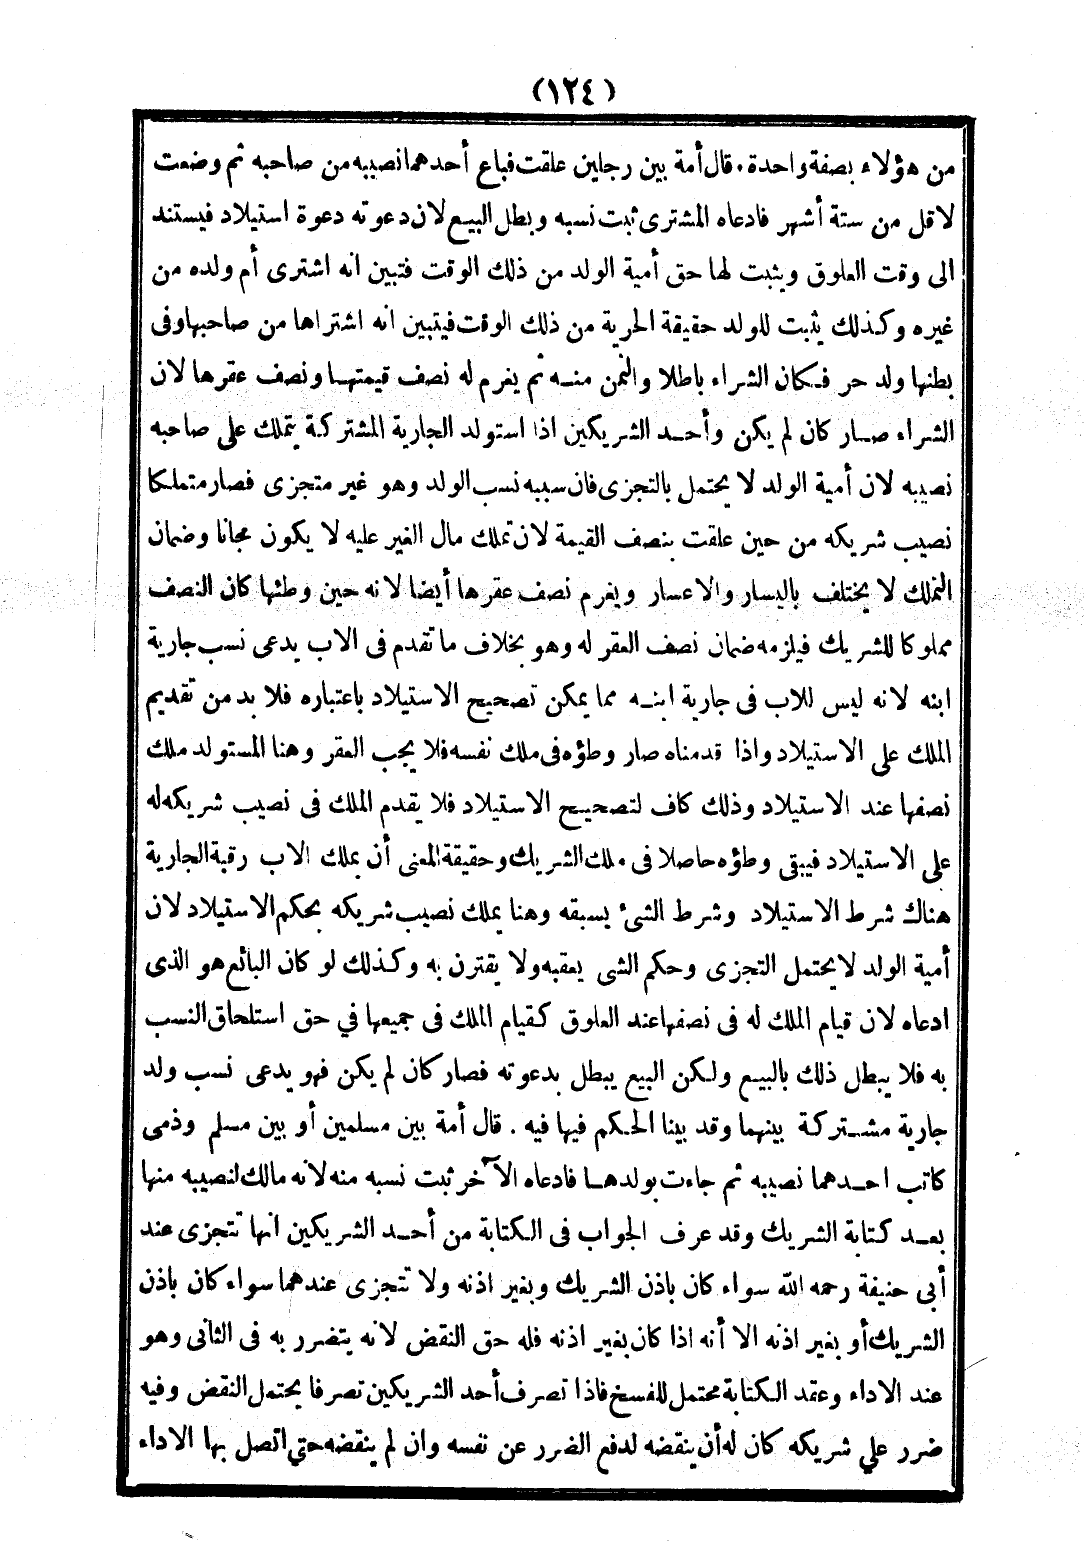 (١٢٤)
من هؤلاء بصفة واحدة . قال أمة بين رجلين علقت فباع أحدهما نصيبه من صاحبه ثم وضعت
لاقل من ستة أشهر فادعاه المشترى ثبت نسبه وبطل البيع لان دعوته دعوة استيلاد فيستند
الى وقت العلوق ويثبت لها حق أمية الولد من ذلك الوقت فتبين انه اشترى أم ولده من
غيره وكذلك يثبت للولد حقيقة الحرية من ذلك الوقت فيتبين انه اشتراها من صاحبها وفى
بطنها ولد حر فكان الشراء باطلا والثمن منه ثم يغرم له نصف قيمتها ونصف عقرها لان
الشراء صار كان لم يكن وأحد الشريكين اذا استولد الجارية المشتركة يتملك على صاحبه
نصيبه لان أمية الولد لا يحتمل بالتجزى فان سببه نسب الولد وهو غير متجزى فصار متملكا
نصيب شريكه من حين علقت بنصف القيمة لان تملك مال الغير عليه لا يكون مجانا وضمان
التملك لا يختلف باليسار والاعسار ويغرم نصف عقرها أيضا لانه حين وطئها كان النصف
مملوكا للشريك فيلزمه ضمان نصف العقر له وهو بخلاف ما تقدم فى الاب يدعى نسب جارية
ابنه لانه ليس للاب فى جارية ابنه مما يمكن تصحيح الاستيلاد باعتباره فلا بد من تقديم
الملك على الاستيلاد واذا قدمناه صار وطؤه فى ملك نفسه فلا يجب العقر وهنا المستولد ملك
نصفها عند الاستيلاد وذلك كاف لتصحيح الاستيلاد فلا يقدم الملك فى نصيب شريكه له
على الاستيلاد فيبقى وطؤه حاصلا فى ملك الشريك وحقيقة المعنى أن بملك الاب رقبة الجارية
هناك شرط الاستيلاد وشرط الشئ يسبقه وهنا يملك نصيب شريكه بحكم الاستيلاد لان
أمية الولد لا يحتمل التجزى وحكم الشى يعقبه ولا يقترن به وكذلك لو كان البائع هو الذى
ادعاه لان قيام الملك له فى نصفها عند العلوق كقيام الملك فى جميعها في حق استلحاق النسب
به فلا يبطل ذلك بالبيع ولكن البيع يبطل بدعوته فصار كان لم يكن فهو يدعى نسب ولد
جارية مشتركة بينهما وقد بينا الحكم فيها فيه . قال أمة بين مسلمين أو بين مسلم وذمى
كاتب احدهما نصيبه ثم جاءت بولدها فادعاه الآخر ثبت نسبه منه لانه مالك لنصيبه منها
بعد كتابة الشريك وقد عرف الجواب فى الكتابة من أحد الشريكين انها تتجزى عند
أبى حنيفة رحمه الله سواء كان باذن الشريك وبغير اذنه ولا تتجزى عندهما سواء كان باذن
الشريك أو بغير اذنه الا أنه اذا كان بغير اذنه فله حق النقض لانه يتضرر به فى الثانى وهو
عند الاداء وعقد الكتابة محتمل للفسخ فاذا تصرف أحد الشريكين تصرفا يحتمل النقض وفيه
ضرر علي شريكه كان له أن ينقضه لدفع الضرر عن نفسه وان لم ينقضه حتى اتصل بها الاداء